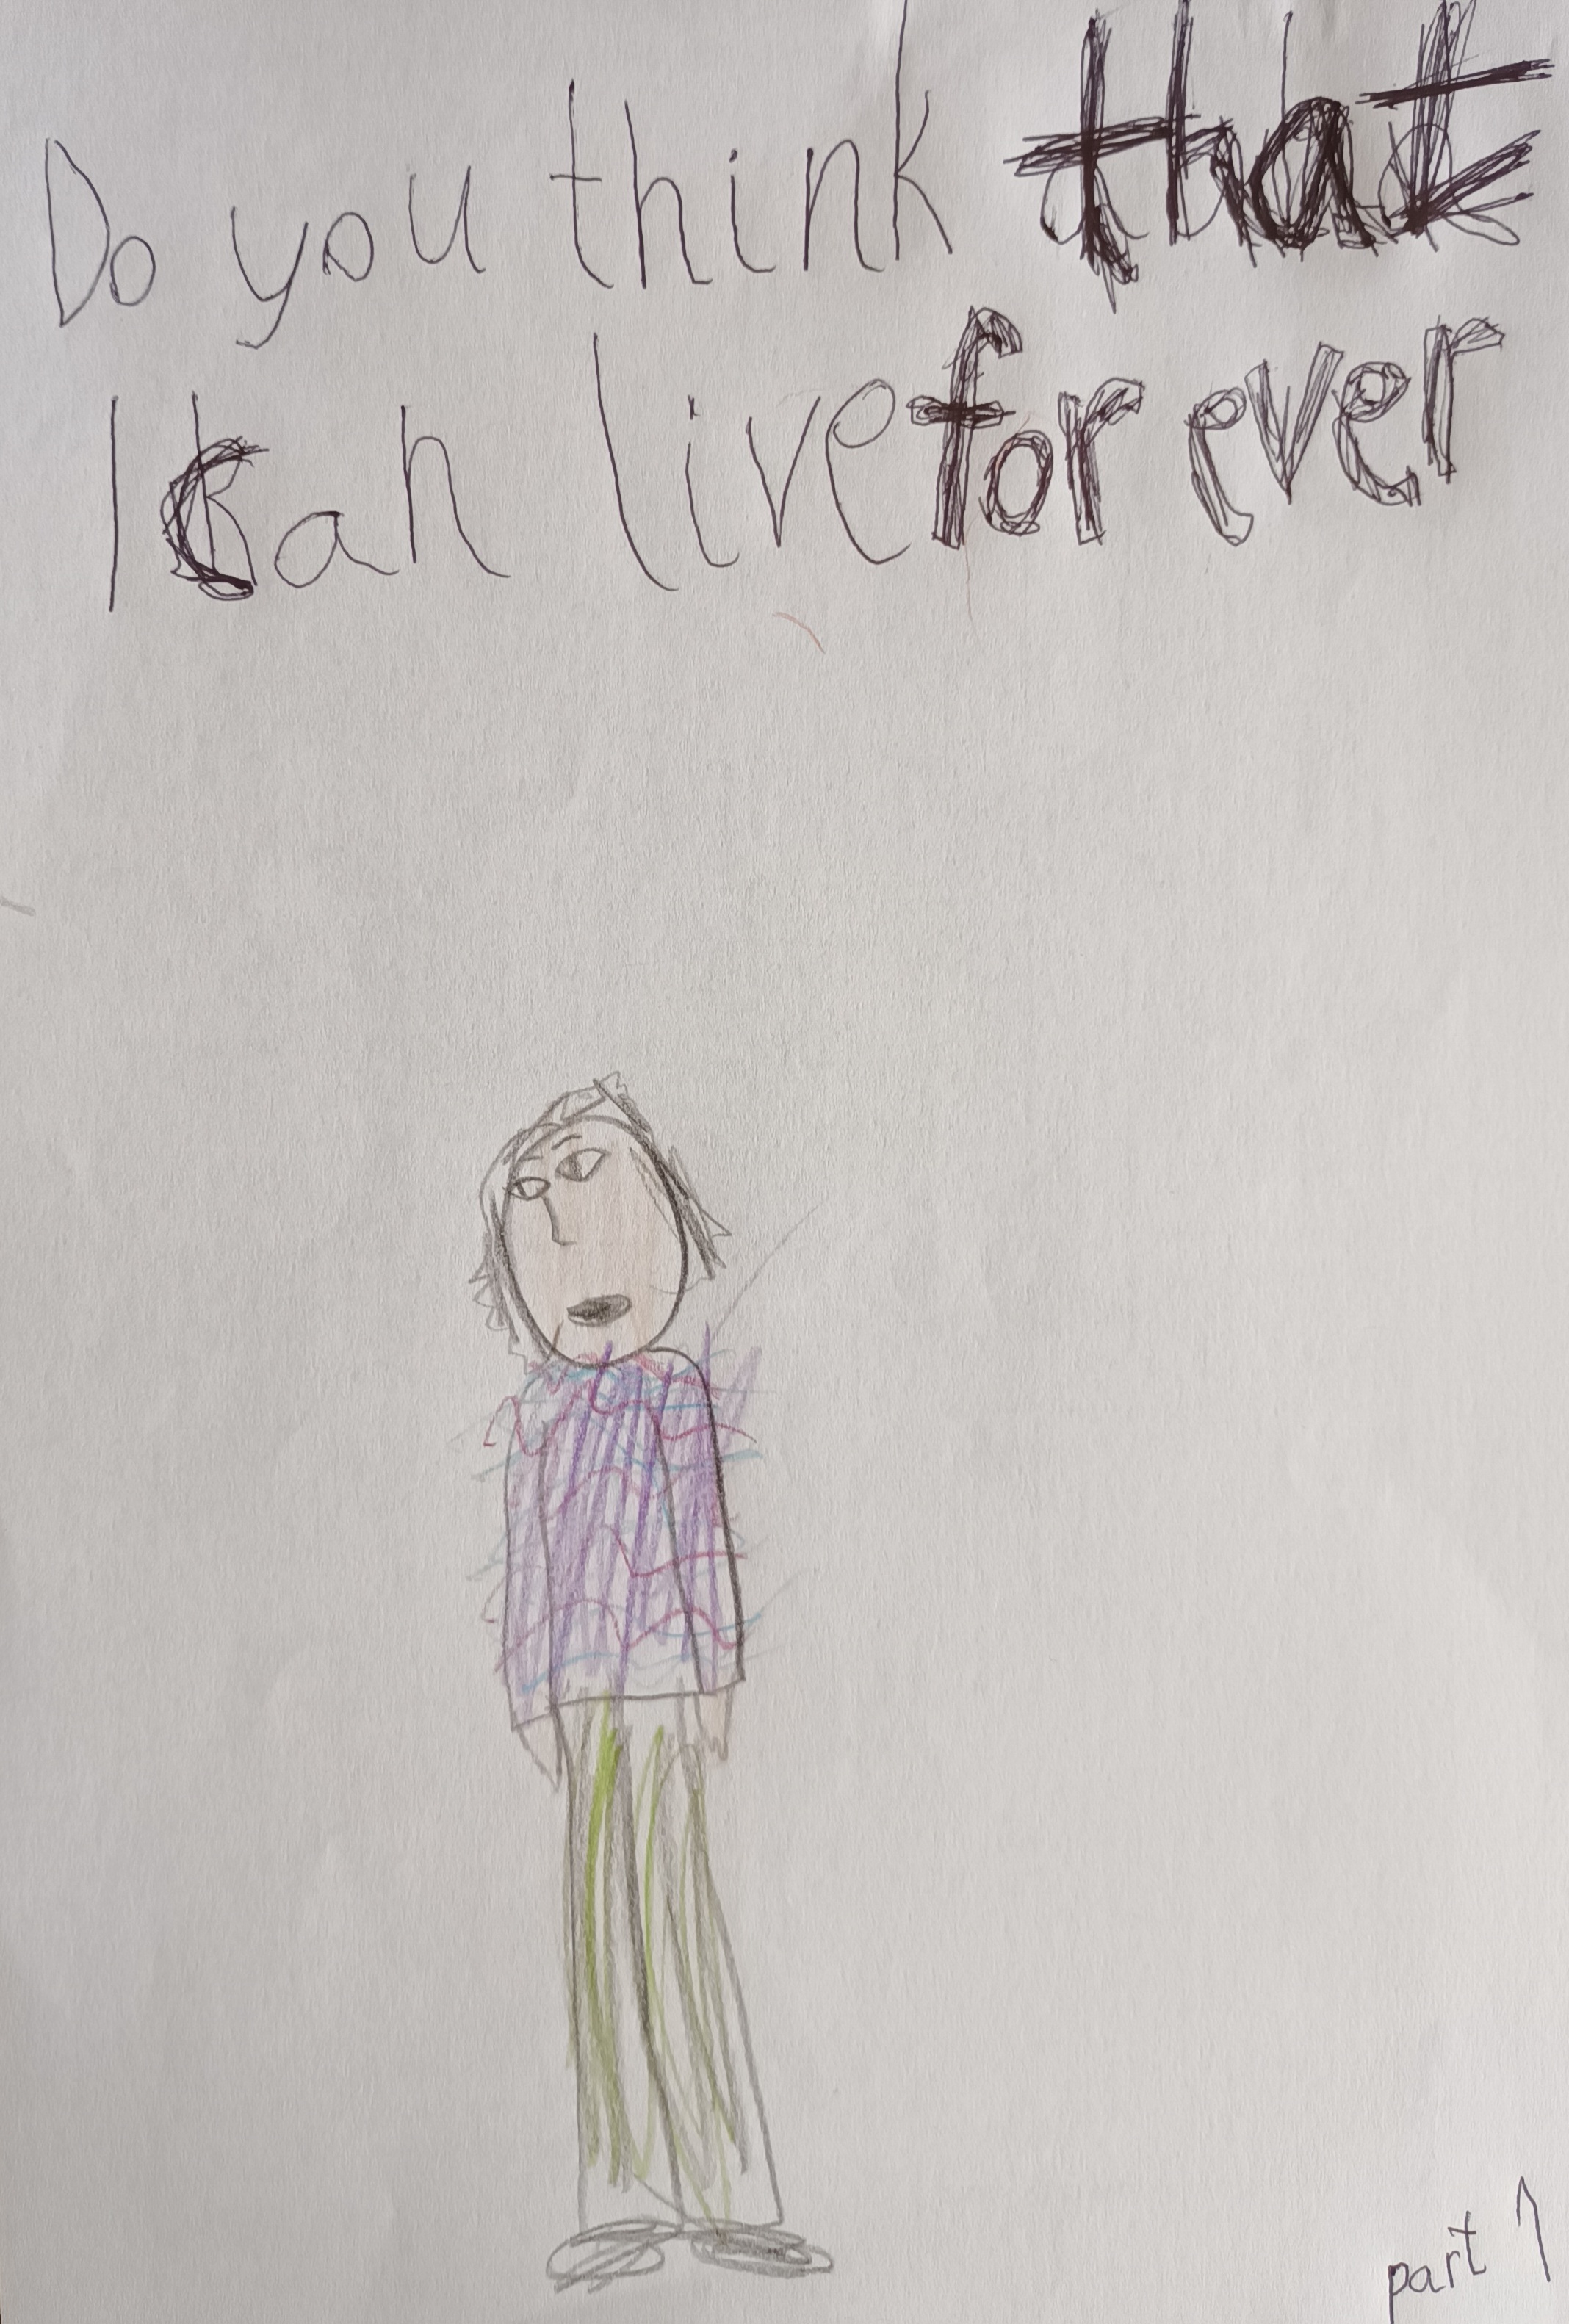 Do you think that
I can live forever
part 1